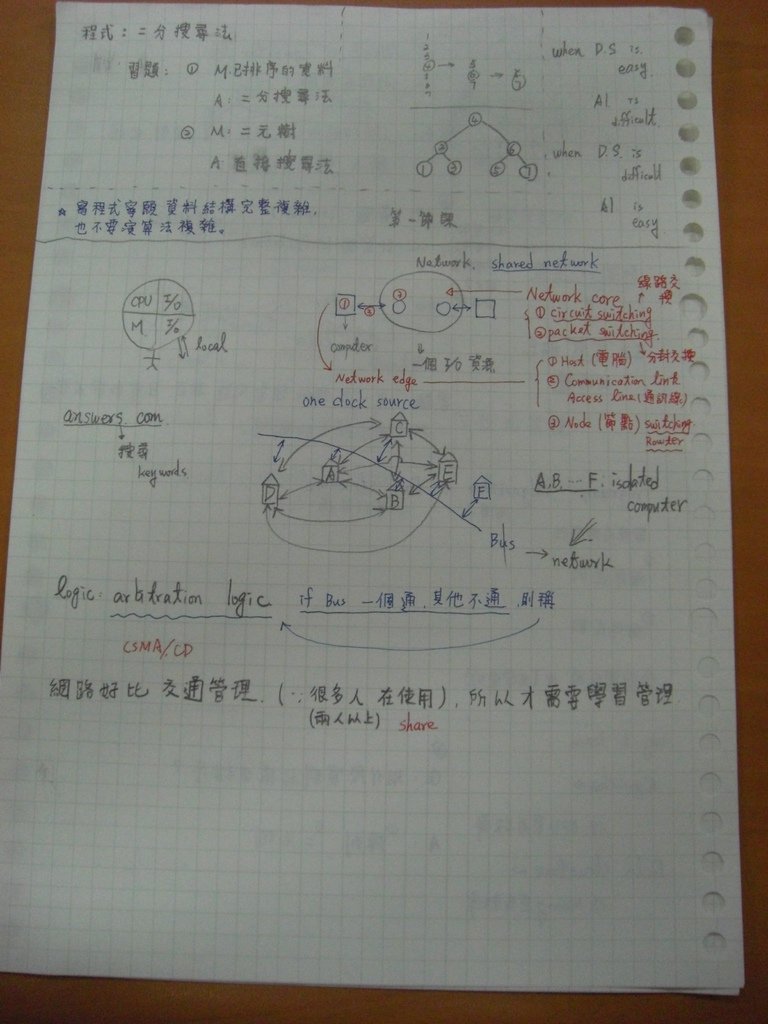 程式：二分搜尋法
習題：① M.已排序的資料
A：二分搜尋法
② M：二元樹
A 直接搜尋法
1
2
3
④ → 5 ⑥ 7 → ⑦
5
6
7
④
② ⑥
① ③ ⑤ ⑦
when D.S is easy.
Al is difficult.
when D.S. is difficult
Al is easy
★ 寫程式寧願資料結構完整複雜,
也不要演算法複雜。
第一節課
CPU I/O
M. I/O
local
Network, shared network
① ② ③
computer
一個 I/O 資源
Network edge
線路交換
Network core
① circuit switching
② packet switching
分封交換
① Host (電腦)
② Communication link
Access line (通訊線)
③ Node (節點) switching
Rowter
answers.com
搜尋
keywords
one clock source
C
D A B E F
Bus
A,B,…F: isolated
computer
→ network
logic: arbitration logic
if Bus 一個通,其他不通,則稱
CSMA/CD
網路好比交通管理.(∵很多人在使用),所以才需要學習管理
(兩人以上) share